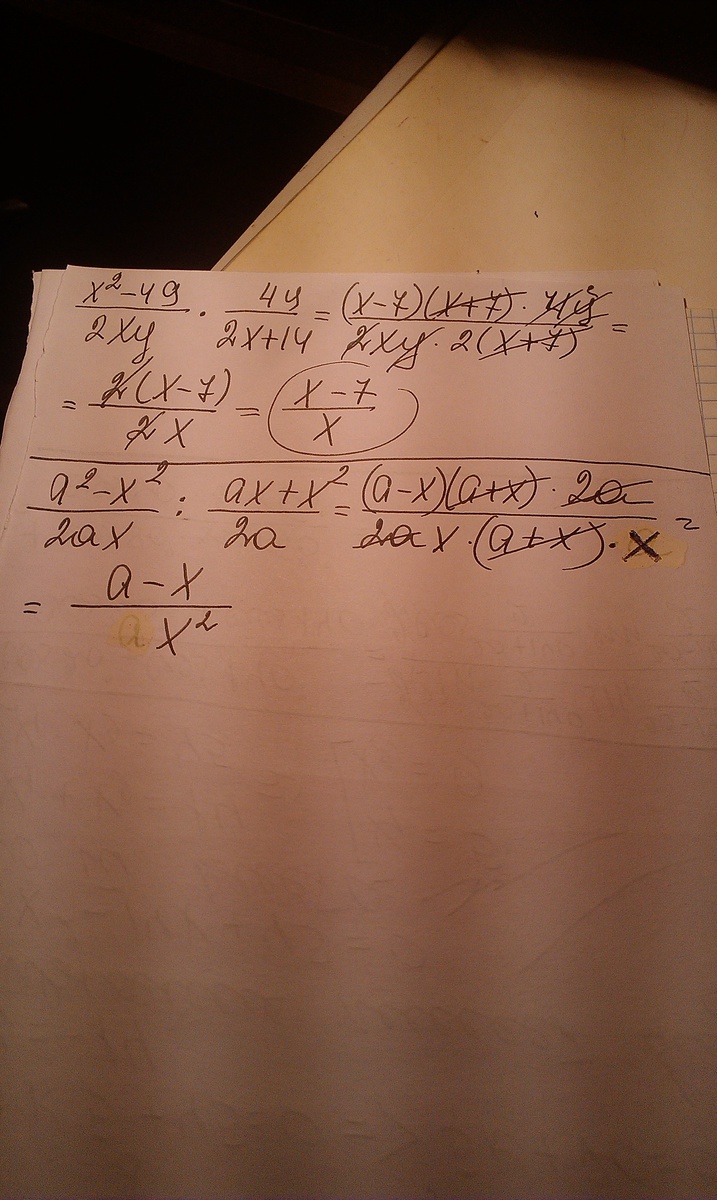 (x²-49)/(2xy) · (4y)/(2x+14) = ((x-7)(x+7) · 4y)/(2xy · 2(x+7)) =
= (2(x-7))/(2x) = (x-7)/x
(a²-x²)/(2ax) : (ax+x²)/(2a) = ((a-x)(a+x) · 2a)/(2ax · (a+x) · x) =
= (a-x)/(x²)